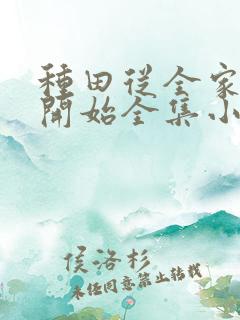 種田從全家
開始全集小
侯洛杉
未經同意禁止轉載